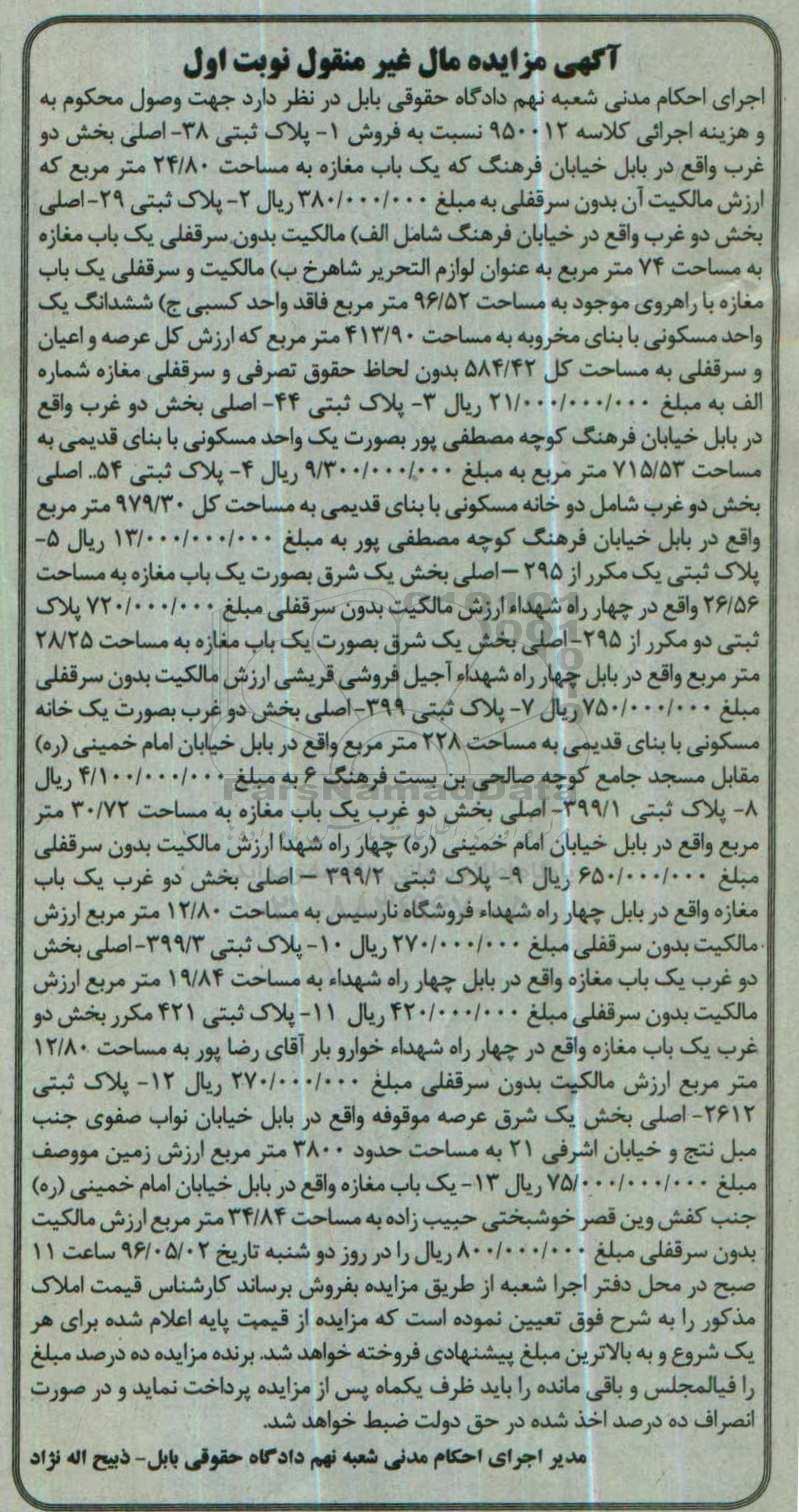 آگهی مزایده مال غیر منقول نوبت اول
اجرای احکام مدنی شعبه نهم دادگاه حقوقی بابل در نظر دارد جهت وصول محکوم به
و هزینه اجرائی کلاسه ۹۵۰۰۱۲ نسبت به فروش ۱- پلاک ثبتی ۳۸- اصلی بخش دو
غرب واقع در بابل خیابان فرهنگ که یک باب مغازه به مساحت ۲۴/۸۰ متر مربع که
ارزش مالکیت آن بدون سرقفلی به مبلغ ۳۸۰/۰۰۰/۰۰۰ ریال ۲- پلاک ثبتی ۲۹-اصلی
بخش دو غرب واقع در خیابان فرهنگ شامل الف) مالکیت بدون سرقفلی یک باب مغازه
به مساحت ۷۴ متر مربع به عنوان لوازم التحریر شاهرخ ب) مالکیت و سرقفلی یک باب
مغازه با راهروی موجود به مساحت ۹۶/۵۲ متر مربع فاقد واحد کسبی ج) ششدانگ یک
واحد مسکونی با بنای مخروبه به مساحت ۴۱۳/۹۰ متر مربع که ارزش کل عرصه و اعیان
و سرقفلی به مساحت کل ۵۸۴/۴۲ بدون لحاظ حقوق تصرفی و سرقفلی مغازه شماره
الف به مبلغ ۲۱/۰۰۰/۰۰۰/۰۰۰ ریال ۳- پلاک ثبتی ۴۴- اصلی بخش دو غرب واقع
در بابل خیابان فرهنگ کوچه مصطفی پور بصورت یک واحد مسکونی با بنای قدیمی به
مساحت ۷۱۵/۵۳ متر مربع به مبلغ ۹/۳۰۰/۰۰۰/۰۰۰ ریال ۴- پلاک ثبتی ۵۴.. اصلی
بخش دو غرب شامل دو خانه مسکونی با بنای قدیمی به مساحت کل ۹۷۹/۳۰ متر مربع
واقع در بابل خیابان فرهنگ کوچه مصطفی پور به مبلغ ۱۳/۰۰۰/۰۰۰/۰۰۰ ریال ۵-
پلاک ثبتی یک مکرر از ۲۹۵ –اصلی بخش یک شرق بصورت یک باب مغازه به مساحت
۲۶/۵۶ واقع در چهار راه شهداء ارزش مالکیت بدون سرقفلی مبلغ ۷۲۰/۰۰۰/۰۰۰ پلاک
ثبتی دو مکرر از ۲۹۵- اصلی بخش یک شرق بصورت یک باب مغازه به مساحت ۲۸/۲۵
متر مربع واقع در بابل چهار راه شهداء آجیل فروشی قریشی ارزش مالکیت بدون سرقفلی
مبلغ ۷۵۰/۰۰۰/۰۰۰ ریال ۷- پلاک ثبتی ۳۹۹-اصلی بخش دو غرب بصورت یک خانه
مسکونی با بنای قدیمی به مساحت ۲۲۸ متر مربع واقع در بابل خیابان امام خمینی (ره)
مقابل مسجد جامع کوچه صالحی بن بست فرهنگ ۶ به مبلغ ۴/۱۰۰/۰۰۰/۰۰۰ ریال
۸- پلاک ثبتی ۳۹۹/۱- اصلی بخش دو غرب یک باب مغازه به مساحت ۳۰/۷۲ متر
مربع واقع در بابل خیابان امام خمینی (ره) چهار راه شهدا ارزش مالکیت بدون سرقفلی
مبلغ ۶۵۰/۰۰۰/۰۰۰ ریال ۹- پلاک ثبتی ۳۹۹/۲ – اصلی بخش دو غرب یک باب
مغازه واقع در بابل چهار راه شهداء فروشگاه نارسیس به مساحت ۱۲/۸۰ متر مربع ارزش
مالکیت بدون سرقفلی مبلغ ۲۷۰/۰۰۰/۰۰۰ ریال ۱۰- پلاک ثبتی ۳۹۹/۳-اصلی بخش
دو غرب یک باب مغازه واقع در بابل چهار راه شهداء به مساحت ۱۹/۸۴ متر مربع ارزش
مالکیت بدون سرقفلی مبلغ ۴۲۰/۰۰۰/۰۰۰ ریال ۱۱- پلاک ثبتی ۴۲۱ مکرر بخش دو
غرب یک باب مغازه واقع در چهار راه شهداء خوارو بار آقای رضا پور به مساحت ۱۲/۸۰
متر مربع ارزش مالکیت بدون سرقفلی مبلغ ۲۷۰/۰۰۰/۰۰۰ ریال ۱۲- پلاک ثبتی
۲۶۱۲- اصلی بخش یک شرق عرصه موقوفه واقع در بابل خیابان نواب صفوی جنب
مبل نتج و خیابان اشرفی ۲۱ به مساحت حدود ۳۸۰۰ متر مربع ارزش زمین مووصف
مبلغ ۷۵/۰۰۰/۰۰۰/۰۰۰ ریال ۱۳- یک باب مغازه واقع در بابل خیابان امام خمینی (ره)
جنب کفش وین قصر خوشبختی حبیب زاده به مساحت ۳۴/۸۴ متر مربع ارزش مالکیت
بدون سرقفلی مبلغ ۸۰۰/۰۰۰/۰۰۰ ریال را در روز دو شنبه تاریخ ۹۶/۰۵/۰۲ ساعت ۱۱
صبح در محل دفتر اجرا شعبه از طریق مزایده بفروش برساند کارشناس قیمت املاک
مذکور را به شرح فوق تعیین نموده است که مزایده از قیمت پایه اعلام شده برای هر
یک شروع و به بالاترین مبلغ پیشنهادی فروخته خواهد شد. برنده مزایده ده درصد مبلغ
را فیالمجلس و باقی مانده را باید ظرف یکماه پس از مزایده پرداخت نماید و در صورت
انصراف ده درصد اخذ شده در حق دولت ضبط خواهد شد.
مدیر اجرای احکام مدنی شعبه نهم دادگاه حقوقی بابل- ذبیح اله نژاد
ParsNamadData